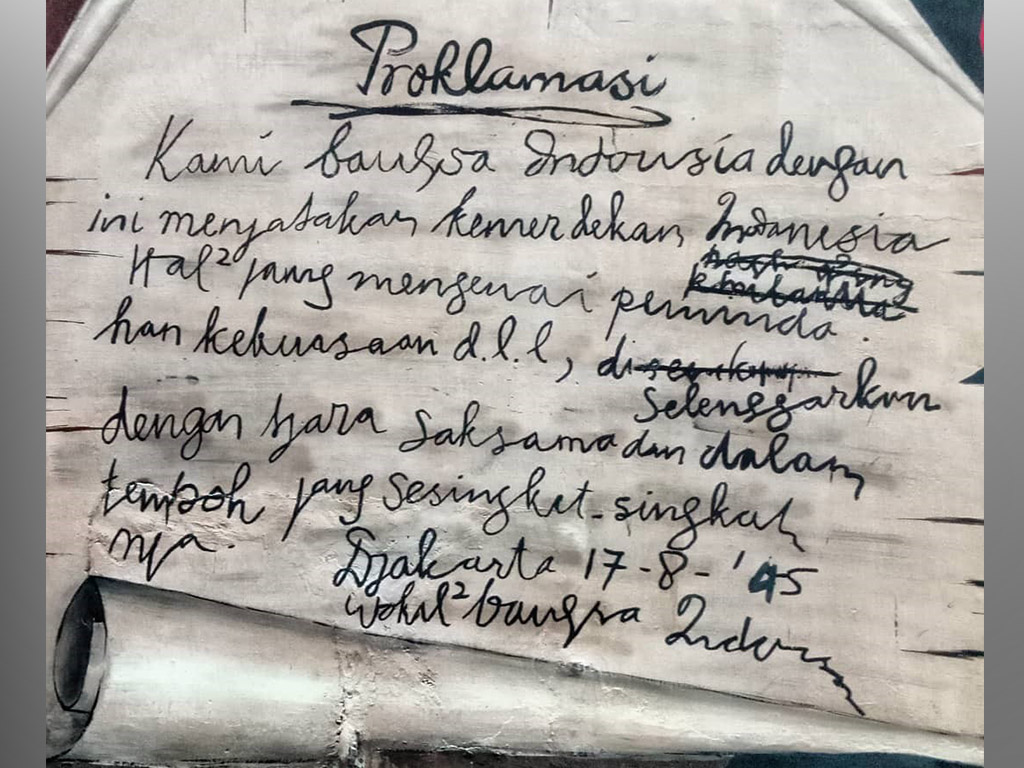 Proklamasi
Kami bangsa Indonesia dengan
ini menjatakan kemerdekan Indonesia
Hal² jang mengenai peminda
han kebuasaan d.l.l, di
Selenggarkan
dengan tjara saksama dan dalam
tempoh jang sesingkat-singkat
nja.
Djakarta 17-8-'45
Wakil² bangsa Indon